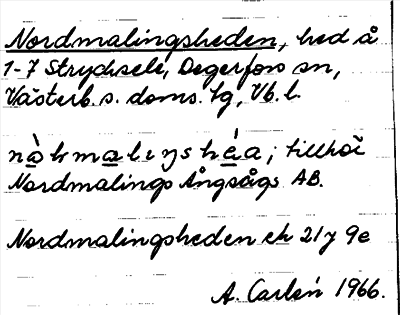 Nordmalingsheden, hed å
1-7 Strycksele, Degerfors sn,
Västerb. s. doms. tg, Vb. l.
nà̱ɫma̱lɩŋshé̱a; tillhör
Nordmalings Ångsågs AB.
Nordmalingsheden ek 21y 9e
A. Carlén 1966.